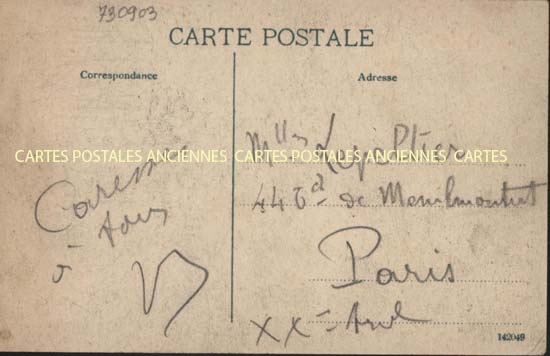 730903
CARTE POSTALE
Correspondance
Adresse
CARTES POSTALES ANCIENNES CARTES POSTALES ANCIENNES CARTES
Caresses
à tous
Mlles Lepeltier
44 Bd de Menilmontant
Paris
XXe Arrd
142049